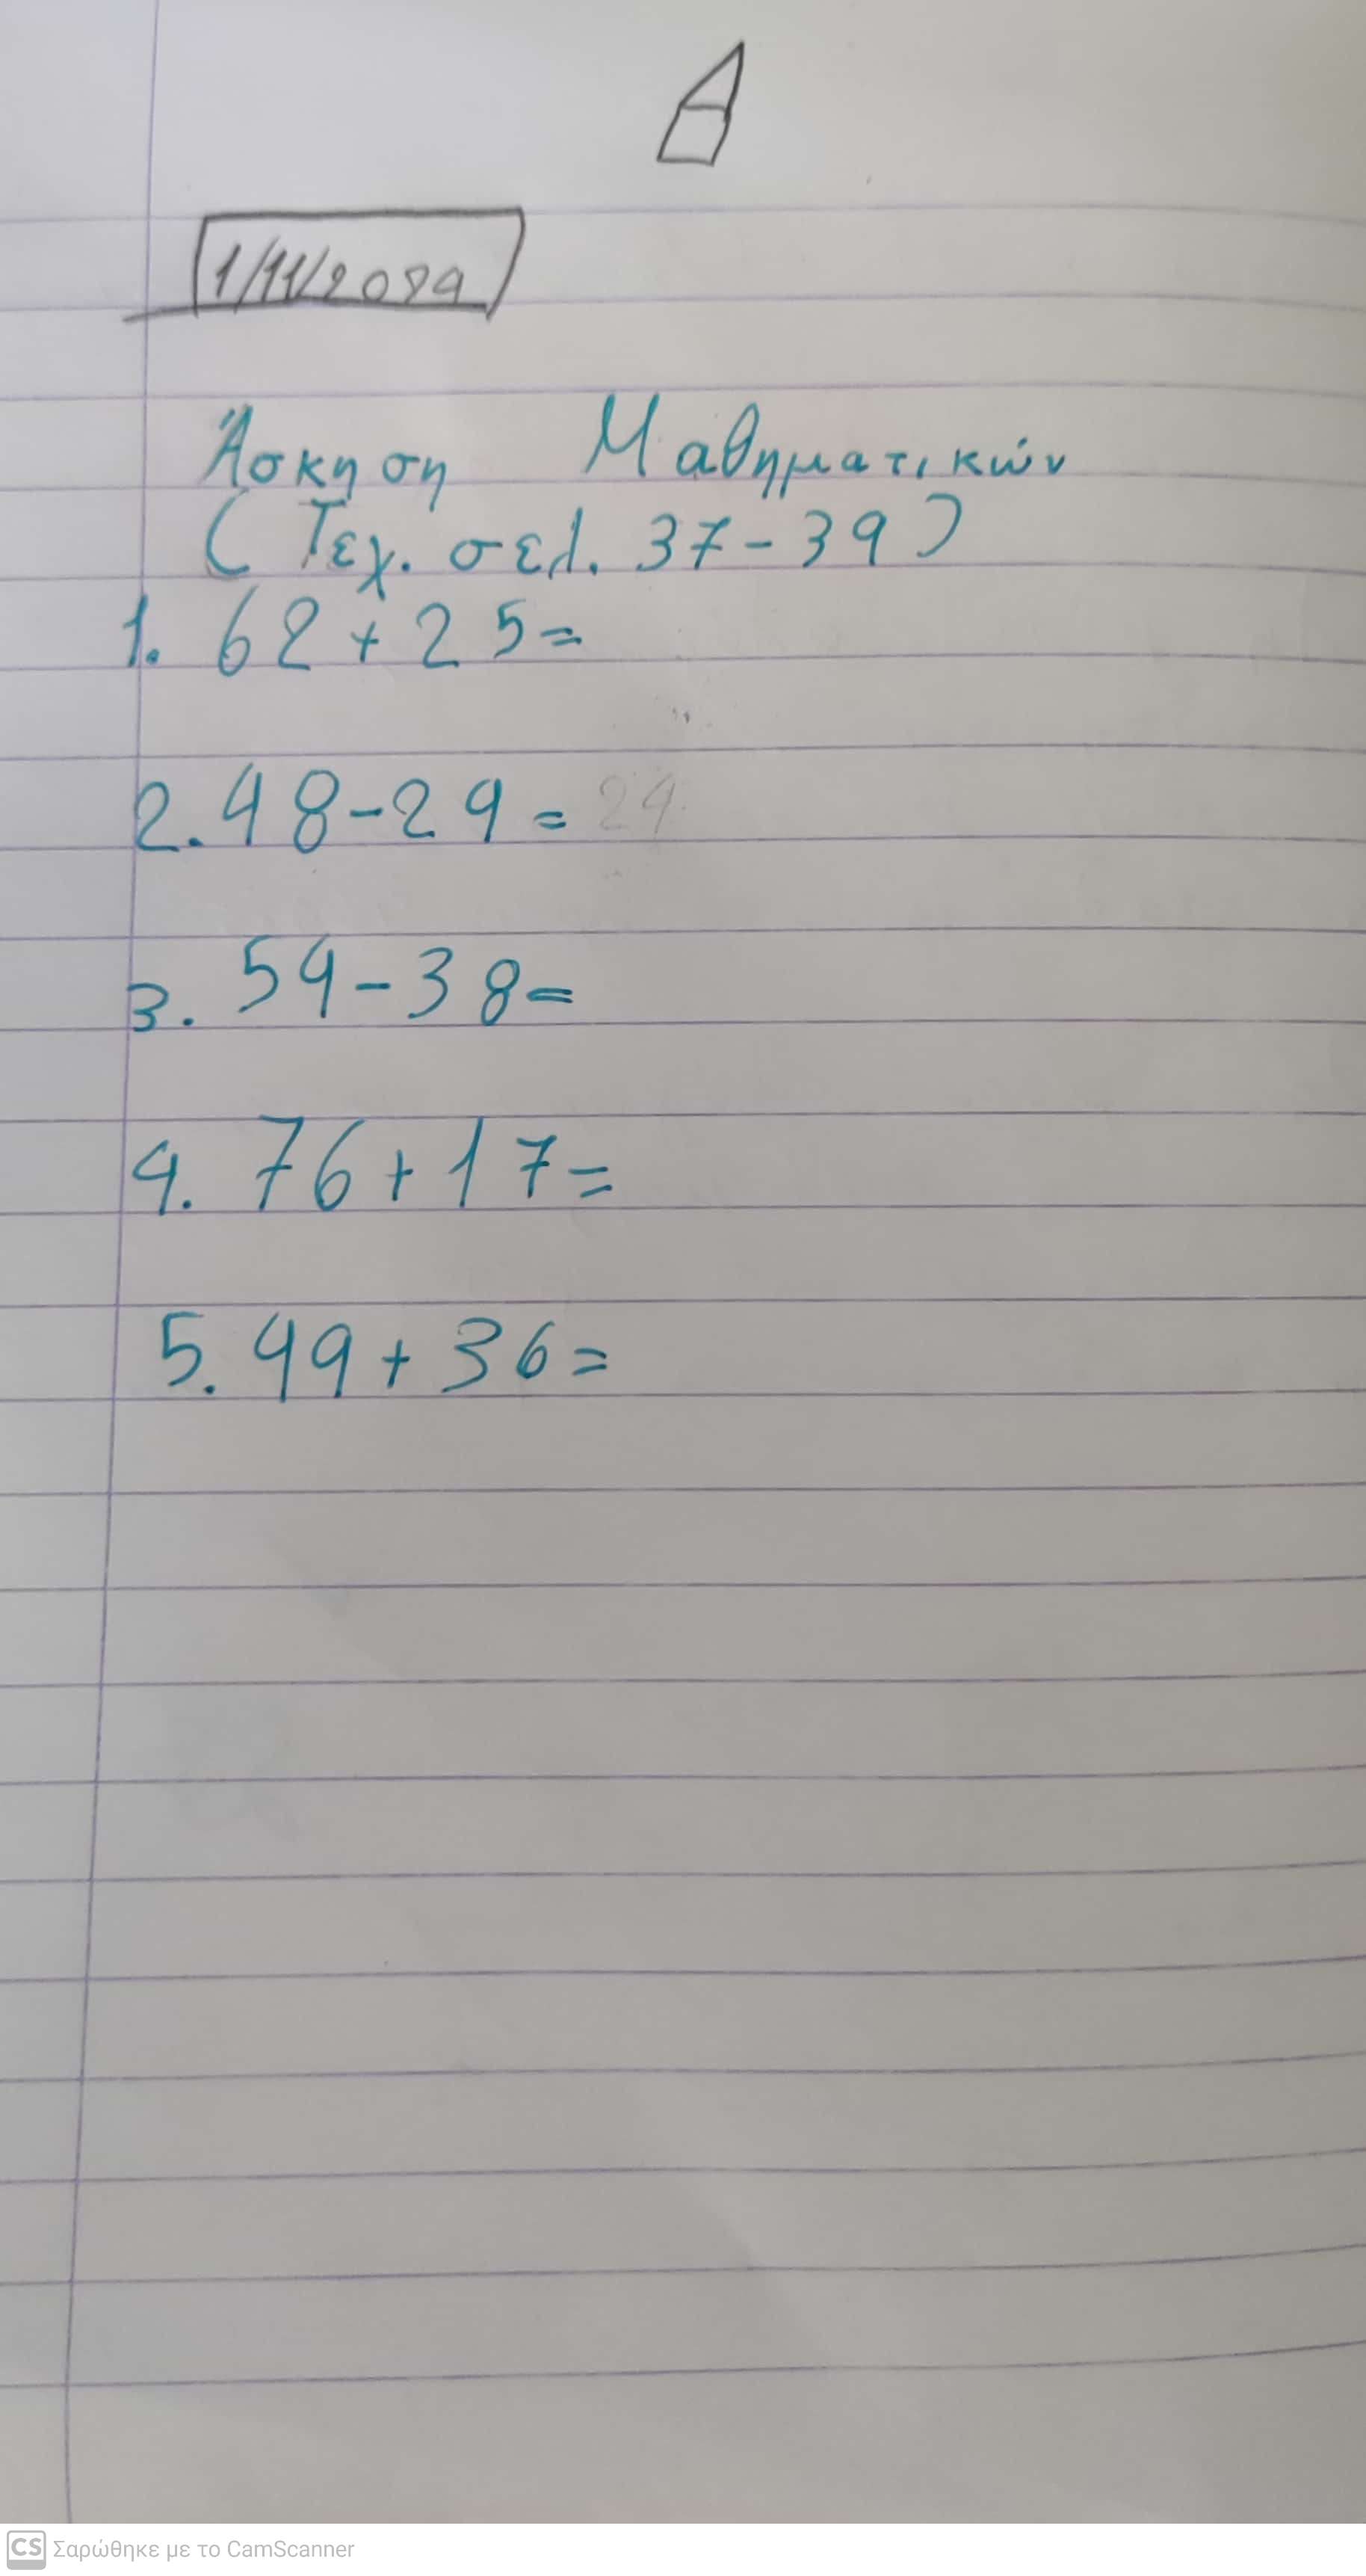 1/11/2024
Άσκηση Μαθηματικών
(Τεχ. σελ. 37-39)
1. 62+25=
2. 48-29= 24
3. 54-38=
4. 76+17=
5. 49+36=
CS Σαρώθηκε με το CamScanner